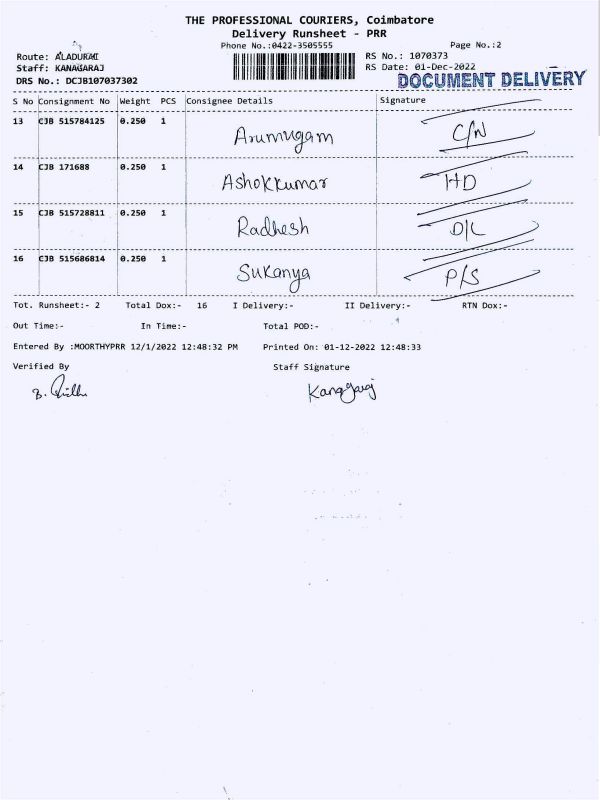 THE PROFESSIONAL COURIERS, Coimbatore
Delivery Runsheet - PRR
Phone No.:0422-3505555 Page No.:2
Route: ALADURAI RS No.: 1070373
Staff: KANAGARAJ RS Date: 01-Dec-2022
DRS No.: DCJB107037302 DOCUMENT DELIVERY
S No Consignment No Weight PCS Consignee Details Signature
13 CJB 515784125 0.250 1 Arumugam C/N
14 CJB 171688 0.250 1 Ashokkumar HD
15 CJB 515728811 0.250 1 Radhesh D/L
16 CJB 515686814 0.250 1 Sukanya P/S
Tot. Runsheet:- 2 Total Dox:- 16 I Delivery:- II Delivery:- RTN Dox:-
Out Time:- In Time:- Total POD:-
Entered By :MOORTHYPRR 12/1/2022 12:48:32 PM Printed On: 01-12-2022 12:48:33
Verified By Staff Signature
Kanagaraj